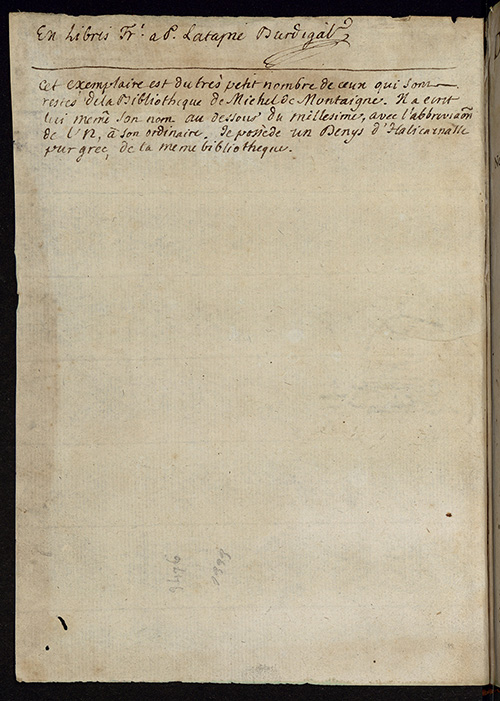 Ex Libris Fr.i a P. Latapie Burdigal.
Cet exemplaire est du très petit nombre de ceux qui sont
restés de la Bibliotheque de Michel de Montaigne. Il a ecrit
lui meme son nom au dessous du millesime, avec l'abbreviaon
de l'N, à son ordinaire. Je possède un Denys d'Halicarnasse
pur grec, de la meme bibliotheque.